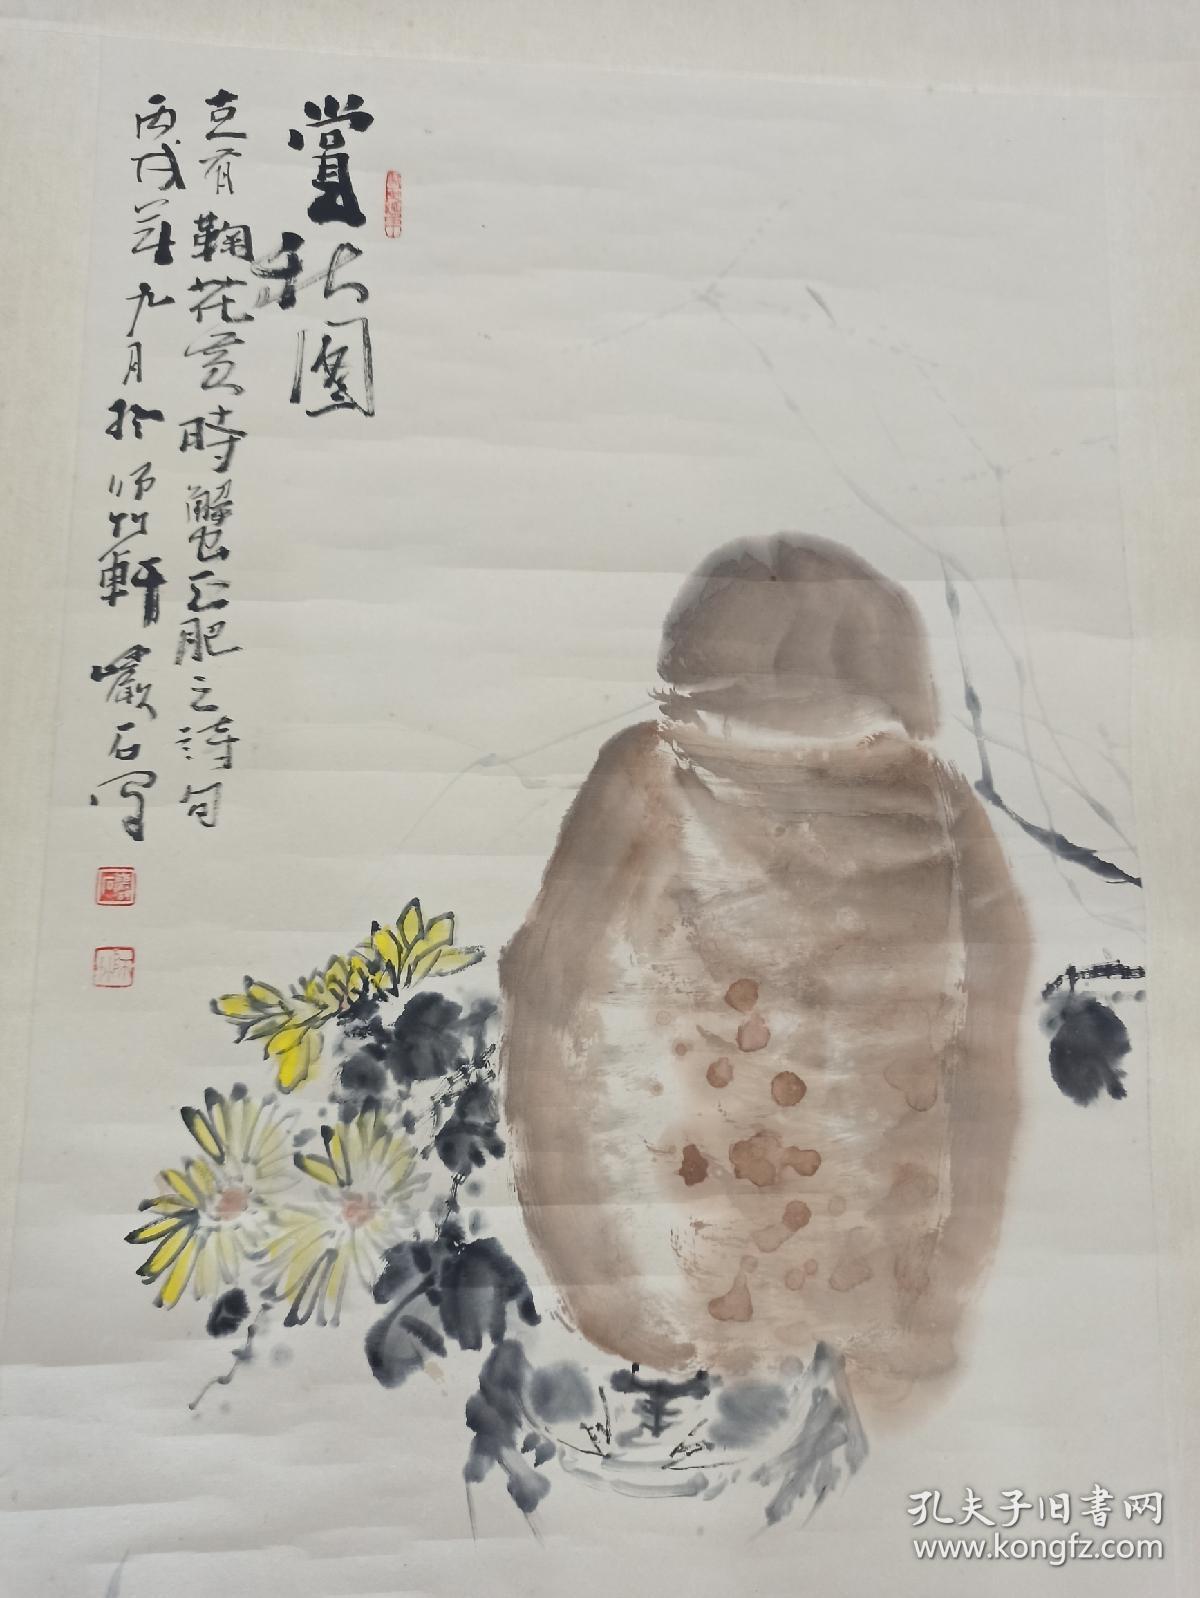 賞秋圖
古有鞠花黄時蟹正肥之詩句
丙戌年九月於师竹軒巖石寫
孔夫子旧書网
www.kongfz.com